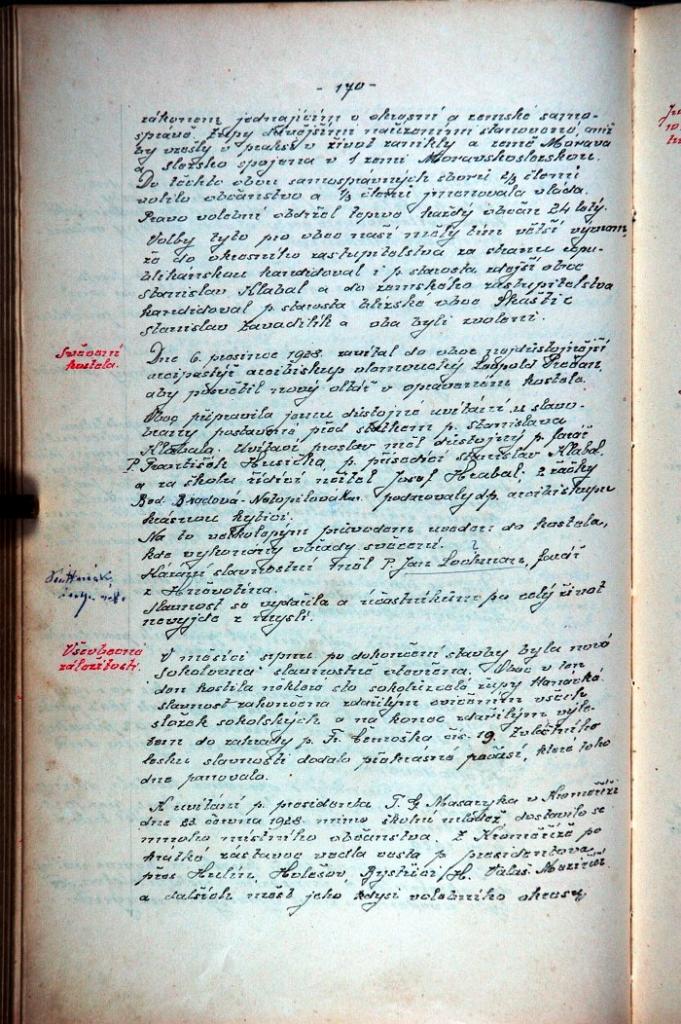 - 170 -
zákonem jednajícím o okresní a zemské samo-
správě. Župy dřívějšími nařízeními stanoveno, aniž
by vešly v praksi v život zanikly a země Morava
a Slezsko spojena v 1 zemi Moravskoslezskou.
Do těchto obou samosprávných sborů 2/3 členů
volilo občanstvo a 1/3 členů jmenovala vláda.
Právo volební obdržel teprve každý občan 24 letý.
Volby tyto pro obec naši měly tím větší význam,
že do okresního zastupitelstva za stranu repu-
blikánskou kandidoval i p. starosta zdejší obce
Stanislav Klabal a do zemského zastupitelstva
kandidoval p. starosta blízské obce Skaštic
Stanislav Zavadilík a oba byli zvoleni.
Svěcení
kostela.
Dne 6. prosince 1928. zavítal do obce nejdůstojnější
arcipastýř arcibiskup olomoucký Leopold Prečan,
aby posvětil nový oltář v opraveném kostele.
Obec připravila jemu důstojné uvítání u slavo-
brány postavené před statkem p. Stanislava
Klabala. Uvítací proslov měl důstojný p. farář
P. František Husička, p. předseda Stanislav Klabal,
a za školu řídící učitel Josef Hrabal. 2 žačky
Bed. Bradová - podarovaly dp. arcibiskupu
krásnou kyticí.
Na to velkolepým průvodem uveden do kostela,
kde vykonány obřady svěcení.
Kázání slavnostní měl P. Jan Lochman, farář
z Hněvotína.
Slavnost se vydařila a účastníkům po celý život
nevyjde z mysli.
Všeobecné
záležitosti.
V měsíci srpnu po dokončení stavby byla nová
sokolovna slavnostně otevřena. Obec v ten
den hostila několik set sokolstva celé župy Hanácké
slavnost zakončena zdařilým cvičením všech
složek sokolských a na konec zdařilým výle-
tem do zahrady p. Fr. Černoška čís. 19. Zvláštního
lesku slavnosti dodalo překrásné počasí, které toho
dne panovalo.
K uvítání p. presidenta T. G. Masaryka v Kroměříži
dne 23. června 1928. mimo školní mládež dostavilo se
mnoho místního občanstva. Z Kroměříže po
krátké zastávce vedla cesta p. presidentova
přes Hulín, Holešov, Bystřici /H. Valaš. Meziříčí
a dalších měst jeho kdysi volebního okresu